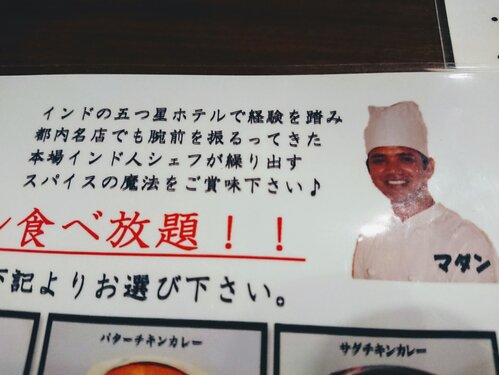 インドの五つ星ホテルで経験を踏み
都内名店でも腕前を振るってきた
本場インド人シェフが繰り出す
スパイスの魔法をご賞味下さい♪
マダン
ン食べ放題！！
下記よりお選び下さい。
バターチキンカレー
サダチキンカレー